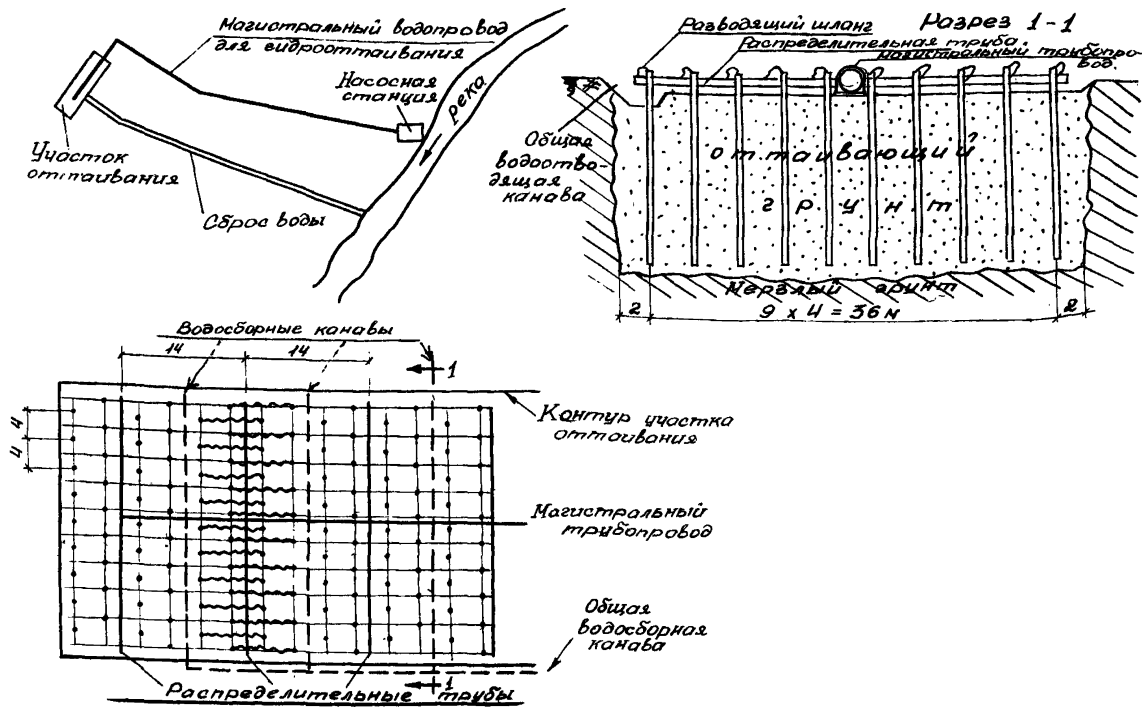 Магистральный водопровод
для гидрооттаивания
Насосная
станция
река
Участок
оттаивания
Сброс воды
Разрез 1-1
Разводящий шланг
Распределительная труба
магистральный трубопро-
вод.
Общая
водоотво-
дящая
канава
оттаивающий
грунт
Мерзлый грунт
2
9 x 4 = 36 м
2
Водосборные канавы
14
14
1
4
4
Контур участка
оттаивания
Магистральный
трубопровод
Общая
водосборная
канава
1
Распределительные трубы